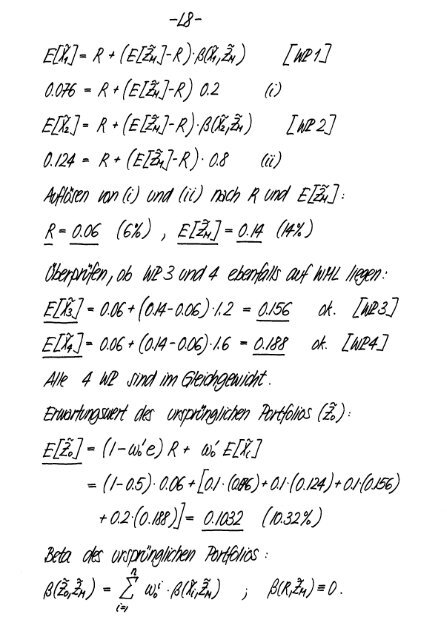 -L8-
E[x̃₁] = R + (E[z̃_M]-R)·β(x̃₁,z̃_M) [WP1]
0.076 = R + (E[z̃_M]-R) 0.2 (i)
E[x̃₂] = R + (E[z̃_M]-R)·β(x̃₂,z̃_M) [WP2]
0.124 = R + (E[z̃_M]-R)·0.8 (ii)
Auflösen von (i) und (ii) nach R und E[z̃_M]:
R = 0.06 (6%) , E[z̃_M] = 0.14 (14%)
Überprüfen, ob WP 3 und 4 ebenfalls auf WML liegen:
E[x̃₃] = 0.06 + (0.14-0.06)·1.2 = 0.156 ok. [WP3]
E[x̃₄] = 0.06 + (0.14-0.06)·1.6 = 0.188 ok. [WP4]
Alle 4 WP sind im Gleichgewicht.
Erwartungswert des ursprünglichen Portfolios (z̃₀):
E[z̃₀] = (1-ω₀'e) R + ω₀' E[x̃ᵢ]
= (1-0.5)·0.06 + [0.1·(0.076)+0.1·(0.124)+0.1(0.156)
+0.2·(0.188)] = 0.1032 (10.32%)
Beta des ursprünglichen Portfolios:
β(z̃₀,z̃_M) = ∑ᵢ₌₁ⁿ ω₀ⁱ · β(x̃ᵢ,z̃_M) ; β(R,z̃_M) ≡ 0.